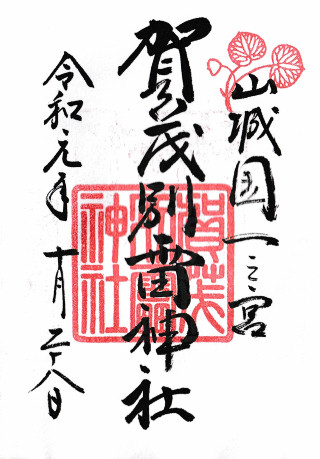 山城国一之宮
賀茂別雷神社
令和元年十月二十八日
賀茂別雷神社